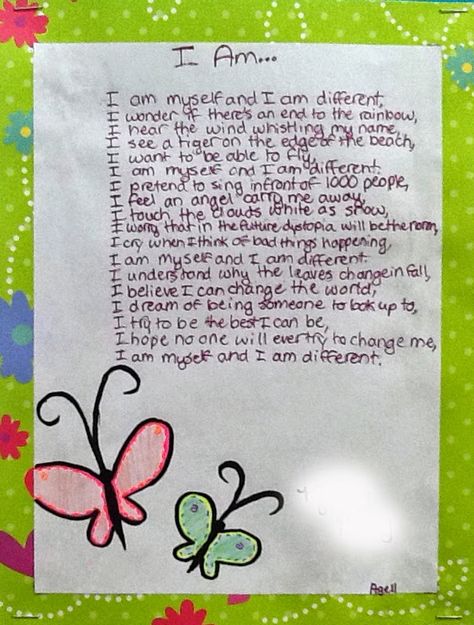 I Am...
I am myself and I am different,
I wonder if there's an end to the rainbow,
I hear the wind whistling my name,
I see a tiger on the edge of the beach,
I want to be able to fly,
I am myself and I am different.
I pretend to sing infront of 1000 people,
I feel an angel carry me away,
I touch the clouds white as snow,
I worry that in the future dystopia will be the norm,
I cry when I think of bad things happening,
I am myself and I am different.
I understand why the leaves change in fall,
I believe I can change the world,
I dream of being someone to look up to,
I try to be the best I can be,
I hope no one will ever try to change me,
I am myself and I am different.
Age 11